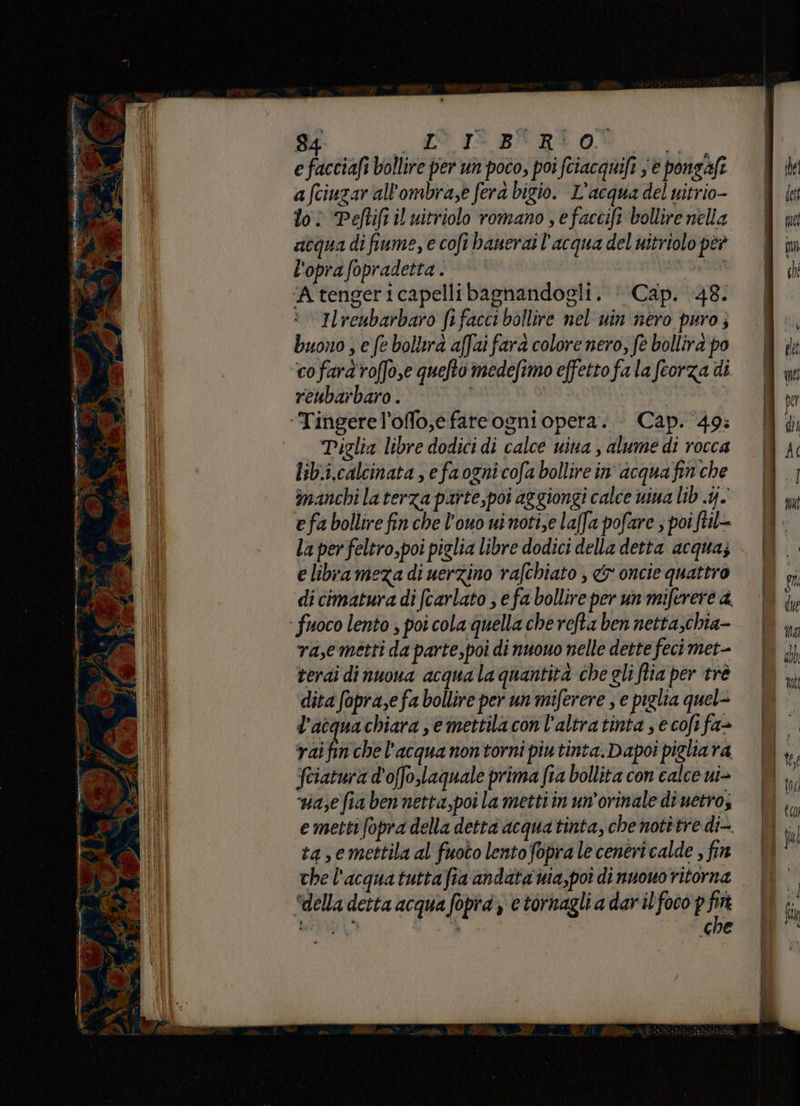 84 LIBRO
e facciaſi bollire per un poco, poi ſciacquiſi, e pongaſi
a ſciugar all'ombra,e ſerà bigio. L'acqua del uitrio-
lo: Peſtiſi il uitriolo romano, e facciſi bollire nella
acqua di fiume, e coſi hauerai l'acqua del uitriolo per
l'opra ſopradetta.
A tenger i capelli bagnandogli. Cap. 48.
Il reubarbaro ſi facci bollire nel uin nero puro;
buono, e ſe bollirà aſſai farà colore nero, ſe bollirà po
co farà roſſo,e queſto medeſimo effetto fa la ſcorza di
reubarbaro.
Tingere l'oſſo,e fare ogni opera. Cap. 49:
Piglia libre dodici di calce uiua, alume di rocca
lib.i.calcinata, e fa ogni coſa bollire in acqua fin che
manchi la terza parte,poi aggiongi calce uiua lib .ij.
e fa bollire fin che l'ouo ui noti,e laſſa poſare, poi ſtil-
la per feltro,poi piglia libre dodici della detta acqua;
e libra meza di uerzino raſchiato, & oncie quattro
di cimatura di ſcarlato, e fa bollire per un miſerere a
fuoco lento, poi cola quella che reſta ben netta,chia-
ra,e metti da parte,poi di nuouo nelle dette feci met-
terai di nuoua acqua la quantità che gli ſtia per tre
dita ſopra,e fa bollire per un miſerere, e piglia quel-
l'acqua chiara, e mettila con l'altra tinta, e coſi fa-
rai fin che l'acqua non torni piu tinta. Dapoi piglia ra
ſciatura d'oſſo,laquale prima ſia bollita con calce ui-
ua,e ſia ben netta,poi la metti in un'orinale di uetro;
e metti ſopra della detta acqua tinta, che noti tre di-
ta, e mettila al fuoco lento ſopra le ceneri calde, fin
che l'acqua tutta ſia andata uia,poi di nuouo ritorna
della detta acqua ſopra, e tornagli a dar il foco p fin
che